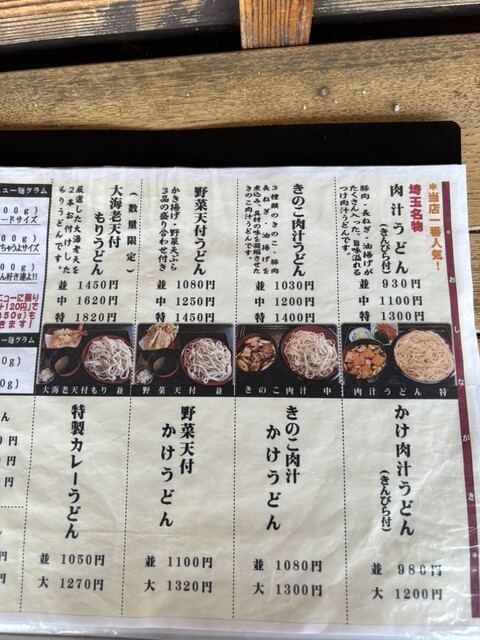 おしながき
*当店一番人気!
埼玉名物
肉汁うどん
(きんぴら付)
豚肉・長ねぎ・油揚げが
たくさん入った、旨味溢れる
つけ肉汁うどんです。
並 930円
中 1100円
特 1300円
きのこ肉汁うどん
3種類のきのこ・豚肉
長ねぎ・油揚げを
煮込み、具材の味を凝縮させた
きのこ肉汁うどんです。
並 1030円
中 1200円
特 1400円
野菜天付うどん
かき揚げ・野菜天ぷら
3品の盛り合わせ付き
並 1080円
中 1250円
特 1450円
大海老天付
もりうどん
(数量限定)
厳選した大海老天を
2本お付けした
もりうどんです。
並 1450円
中 1620円
特 1820円
肉汁うどん 特
きのこ肉汁 中
野菜天付 並
大海老天付もり 並
かけ肉汁うどん
(きんぴら付)
並 980円
大 1200円
きのこ肉汁
かけうどん
並 1080円
大 1300円
野菜天付
かけうどん
並 1100円
大 1320円
特製カレーうどん
並 1050円
大 1270円
ニュー麺グラム
00g)
ードサイズ
00g)
ちゃうよサイズ
00g)
ん好き達よ!!
ニューに限り
120円で
50g)
きます!
ー麺グラム
0g)
0g)